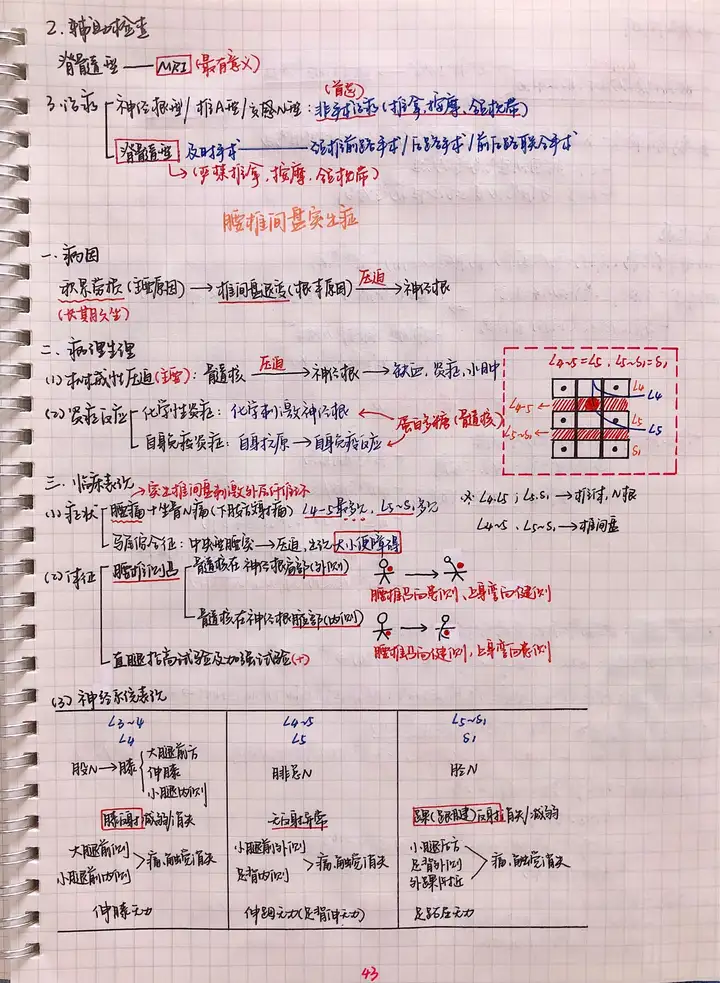 2. 辅助检查
脊髓型 —— MRI (最有意义)
(首选)
3. 治疗 神经根型/椎A型/交感N型：非手术治疗(推拿、按摩、颌枕带)
脊髓型 及时手术 —— 颈椎前路手术/后路手术/前后路联合手术
→(严禁推拿、按摩、颌枕带)
腰椎间盘突出症
一. 病因
积累劳损(主要原因) → 椎间盘退变(根本原因) 压迫→ 神经根
(长期久坐)
二. 病理生理
(1) 机械性压迫(主要)：髓核 压迫→ 神经根 → 缺血、炎症、水肿
(2) 炎症反应 化学性炎症：化学刺激神经根
蛋白多糖(髓核)
自身免疫炎症：自身抗原 → 自身免疫反应
L4~5=L5、L5~S1=S1
L4 L4
L4~5
L5 L5
L5~S1
S1
三. 临床表现
→突出椎间盘刺激外层纤维环
(1) 症状 腰痛+坐骨N痛(下肢放射痛) L4~5最多见、L5~S1多见
马尾综合征：中央型腰突 → 压迫，出现大小便障碍
※ L4.L5；L5.S1 → 椎体、N根
L4~5、L5~S1 → 椎间盘
(2) 体征 腰椎侧凸 髓核在神经根肩部(外侧)
腰椎凸向患侧、上身弯向健侧
髓核在神经根腋部(内侧)
腰椎凸向健侧、上身弯向患侧
直腿抬高试验及加强试验(+)
(3) 神经系统表现
L3~4 L4~5 L5~S1
L4 L5 S1
股N→膝 大腿前方 伸膝 小腿内侧 腓总N 胫N
膝反射减弱/消失 无反射异常 踝(跟腱)反射消失/减弱
大腿前侧 小腿前内侧 >痛、触觉消失 小腿前外侧 足背内侧 >痛、触觉消失 小腿后方 足背外侧 外踝附近 >痛、触觉消失
伸膝无力 伸踇无力(足背伸无力) 足跖屈无力
43